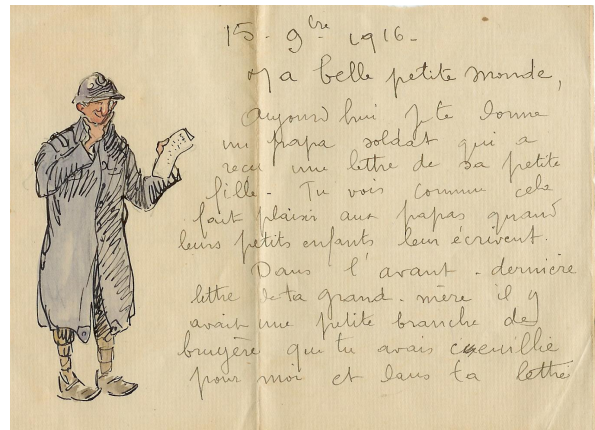 15 - 9bre 1916 -
Ma belle petite monde,
Aujourd'hui je te donne
un papa soldat qui a
recu une lettre de sa petite
fille - Tu vois comme cela
fait plaisir aux papas quand
leurs petits enfants leur écrivent.
Dans l'avant-dernière
lettre de ta grand-mère il y
avait une petite branche de
bruyère que tu avais cueillie
pour moi et dans ta lettre